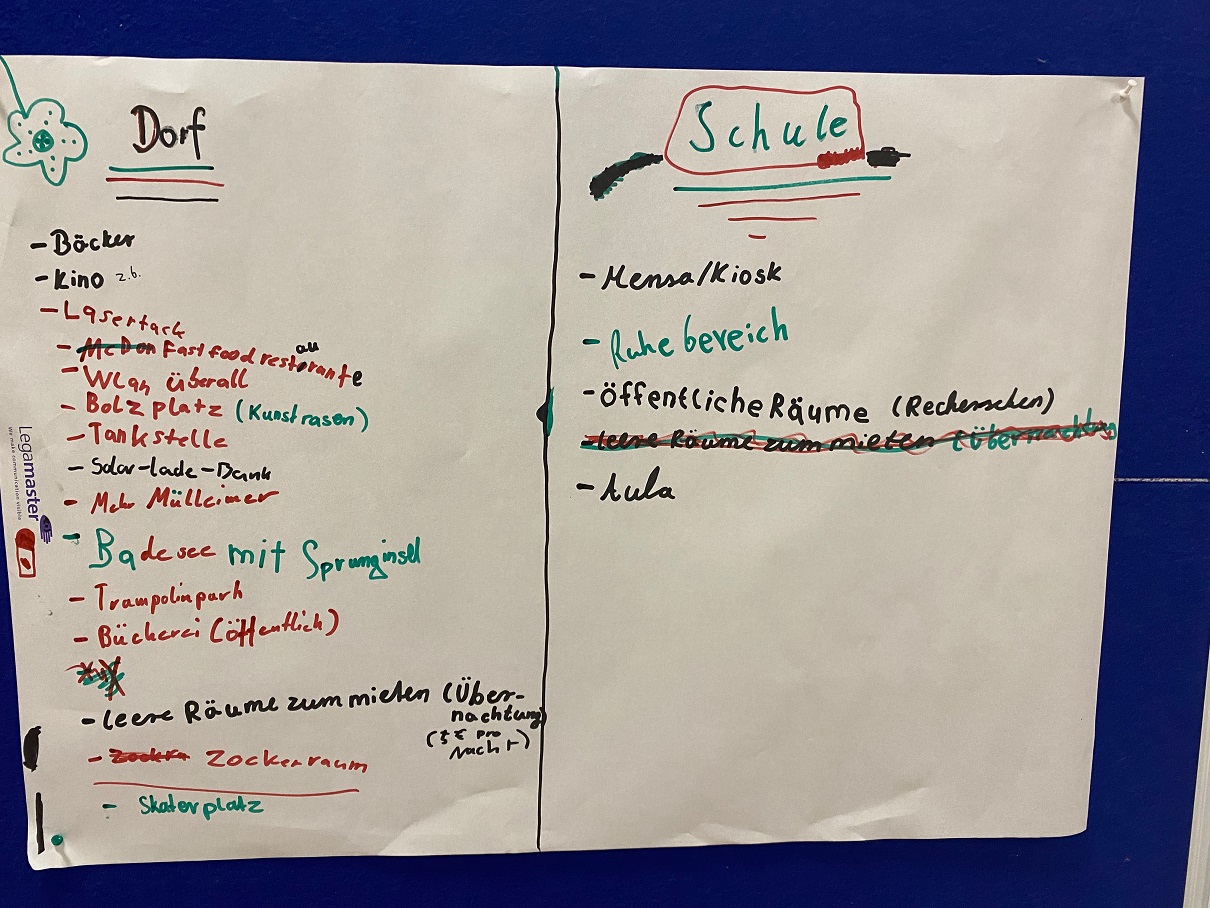 Dorf
- Bäcker
- Kino z.b.
- Lasertack
- McDon Fastfood restaurante
- Wlan überall
- Bolzplatz (Kunstrasen)
- Tankstelle
- Solar-lade-Bank
- Mehr Mülleimer
- Badesee mit Sprunginsel
- Trampolinpark
- Bücherei (öffentlich)
- leere Räume zum mieten (Über-
nachtung)
(5€ pro
Nacht)
- Zockerraum
- Skaterplatz
Legamaster
We make communication visible
Schule
- Mensa/Kiosk
- Ruhebereich
- öffentliche Räume (Recherschen)
- leere Räume zum mieten (Übernachtung
- Aula